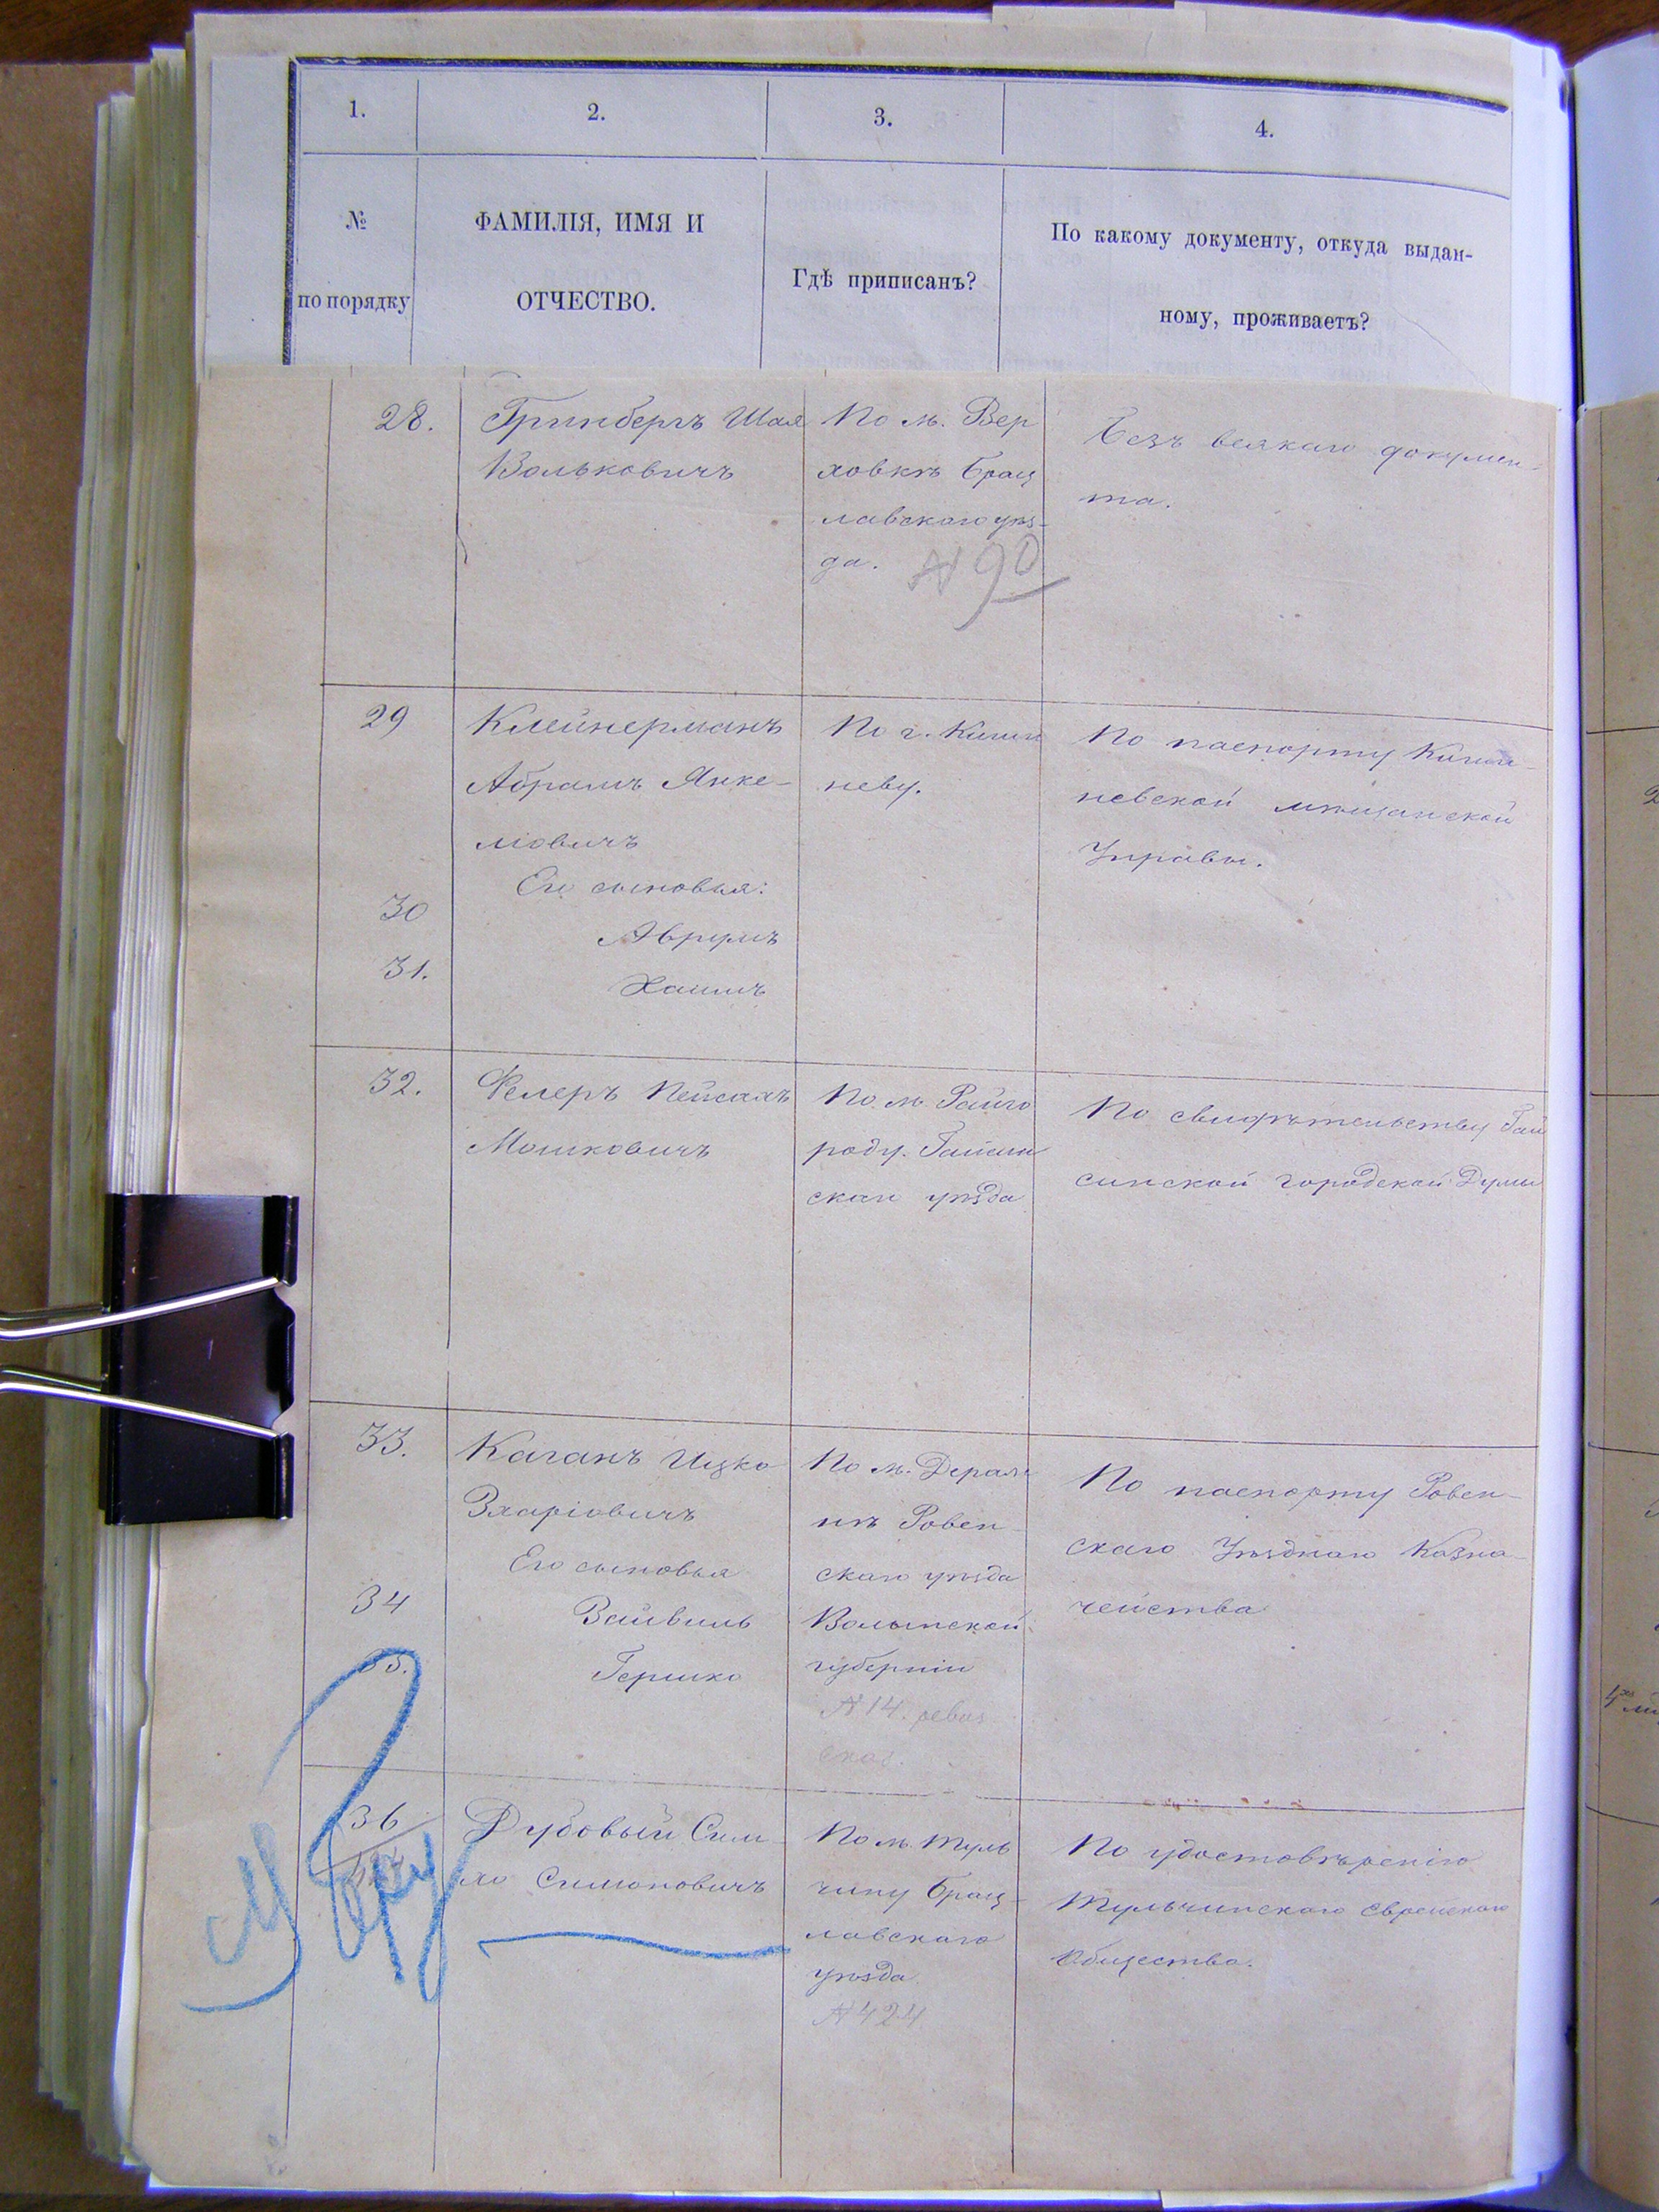 1.
2.
3.
4.
№
по порядку
ФАМИЛІЯ, ИМЯ И
ОТЧЕСТВО.
Гдѣ приписанъ?
По какому документу, откуда выдан-
ному, проживаетъ?
28.
Гринбергъ Шая
Вольковичъ
По м. Вер
ховкѣ Брац
лавскаго уѣз-
да. № 90
Безъ всякаго докумен-
та.
29
Клейнерманъ
Абрамъ Янке-
ліовичъ
Его сыновья:
30
Аврумъ
31.
Хаимъ
По г. Киши
неву.
По паспорту Киши-
невской мѣщанской
Управы.
32.
Фелеръ Пейсахъ
Мошковичъ
По м. Райго
роду. Гайсин
скаго уѣзда
По свидѣтельству Гай
синской городской Думы
33.
Каганъ Ицко
Зхаріовичъ
Его сыновья
34
Зайвиль
35.
Гершко
По м. Деражн
нѣ Ровен-
скаго уѣзда
Волынской
губерніи
№ 14. ревиз
сказ.
По паспорту Ровен-
скаго Уѣзднаго Казна-
чейства
36
Дубовый Сим-
ха Симоновичъ
По м. Туль
чину Брац-
лавскаго
уѣзда
№ 424
По удостовѣренію
Тульчинскаго Еврейскаго
Общества.